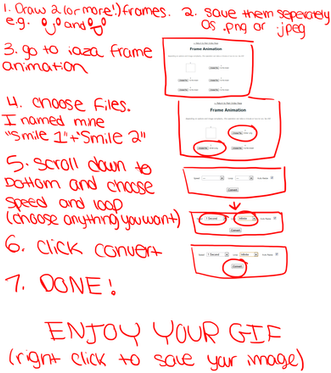 1. Draw 2 (or more!) frames.
e.g. and
2. save them seperately
as .png or .jpeg
3. go to iaza frame
animation
Frame Animation
4. choose files.
I named mine
"Smile 1"+"Smile 2"
Frame Animation
5. scroll down to
bottom and choose
speed and loop
(choose anything you want)
6. click convert
7. DONE!
ENJOY YOUR GIF
(right click to save your image)